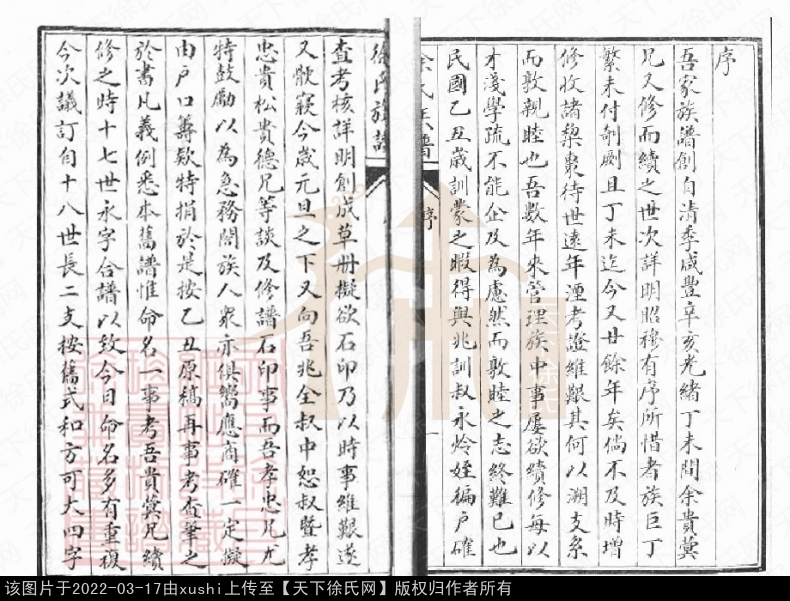 序
吾家族譜創自清季咸豐辛亥光緒丁未間余貴蓂
兄又修而續之世次詳明昭穆有序所惜者族巨丁
繁未付剞劂且丁未迄今又廿餘年矣倘不及時增
修收諸棃棗待世遠年湮考證維艱其何以溯支系
而敦親睦也吾數年來管理族中事屢欲續修每以
才淺學疏不能企及為慮然而敦睦之志終難已也
民國乙丑歲訓蒙之暇得與兆訓叔永姈姪徧戶確
徐氏族譜
序
一
徐氏族譜
查考核詳明創成草册擬欲石印乃以時事維艱遂
又骩窽今歲元旦之下又向吾兆全叔中恕叔暨孝
忠貴松貴德兄等談及修譜石印事而吾孝忠兄尤
特鼓勵以為急務閤族人衆亦俱嚮應商確一定擬
由戶口籌欵特捐於是按乙丑原稿再事考查筆之
於書凡義例悉本舊譜惟命名一事考吾貴蓂兄續
修之時十七世永字合譜以致今日命名多有重複
今次議訂自十八世長二支按舊式和方可大四字
该图片于2022-03-17由xushi上传至【天下徐氏网】版权归作者所有